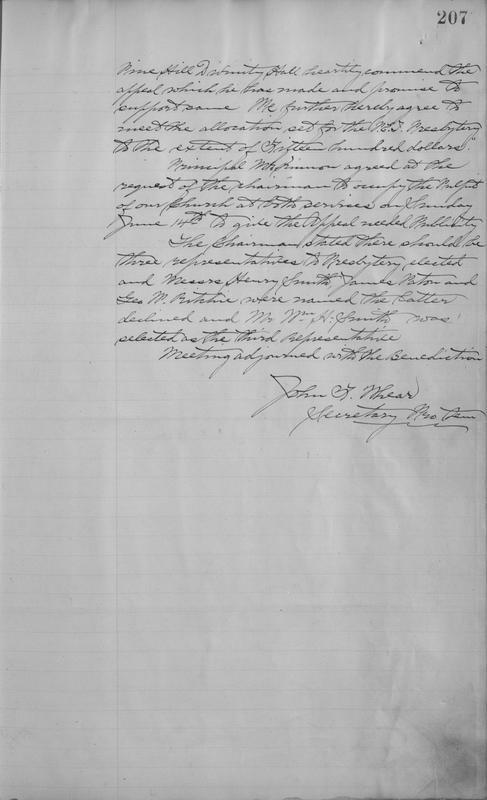 207
Pine Hill Divinity Hall heartily commend the
appeal which he has made and promise to
support same We further hereby agree to
meet the allocation set for the P.E.I. Presbytery
to the extent of Fifteen hundred dollars".
Principal McKinnon agreed at the
request of the chairman to occupy the Pulpit
of our Church at both services on Sunday
June 14th to give the Appeal needed Publicity
The Chairman stated there should be
three representatives to Presbytery, elected
and Messrs Henry Smith James Paton and
Geo W. Ritchie were named the latter
declined and Mr Wm H. Smith was
selected as the third representative
Meeting adjourned with the Benediction
John F. Whear
Secretary Pro tem